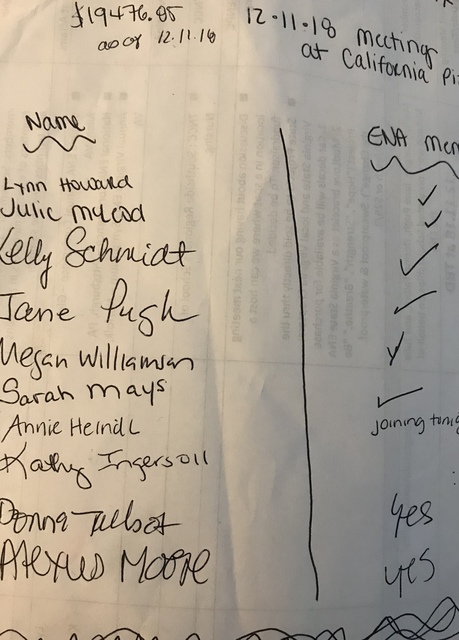 $19476.05
as of 12.11.18
12.11.18 meeting
at California Pi
Name
ENA mem
Lynn Howard
Julie McLeod
Kelly Schmidt
Jane Pugh
Megan Williamson
Sarah Mays
Annie Heindl
joining tonig
Kathy Ingersoll
Donna Talbot
yes
Alexus Moore
yes